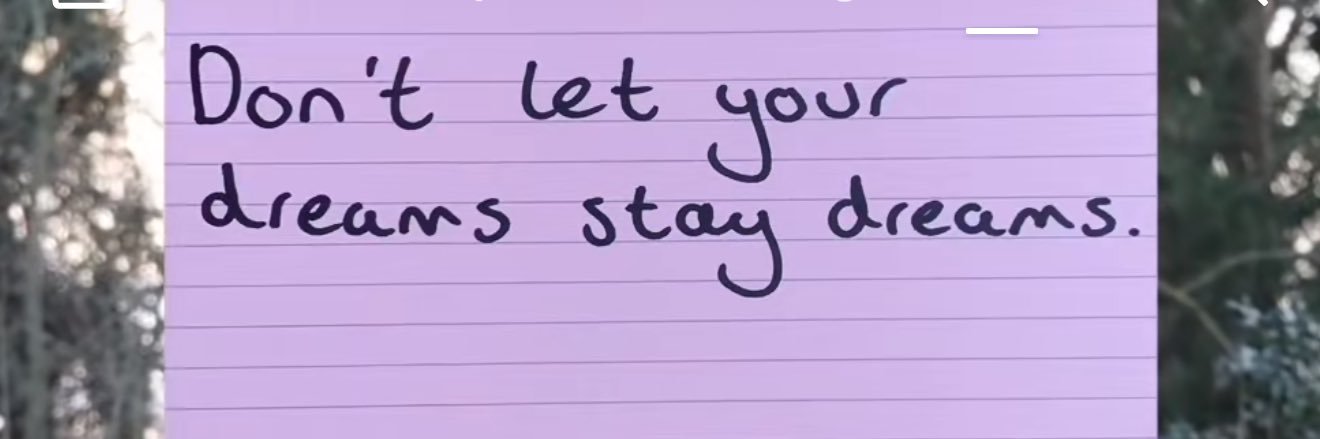 Don't let your
dreams stay dreams.